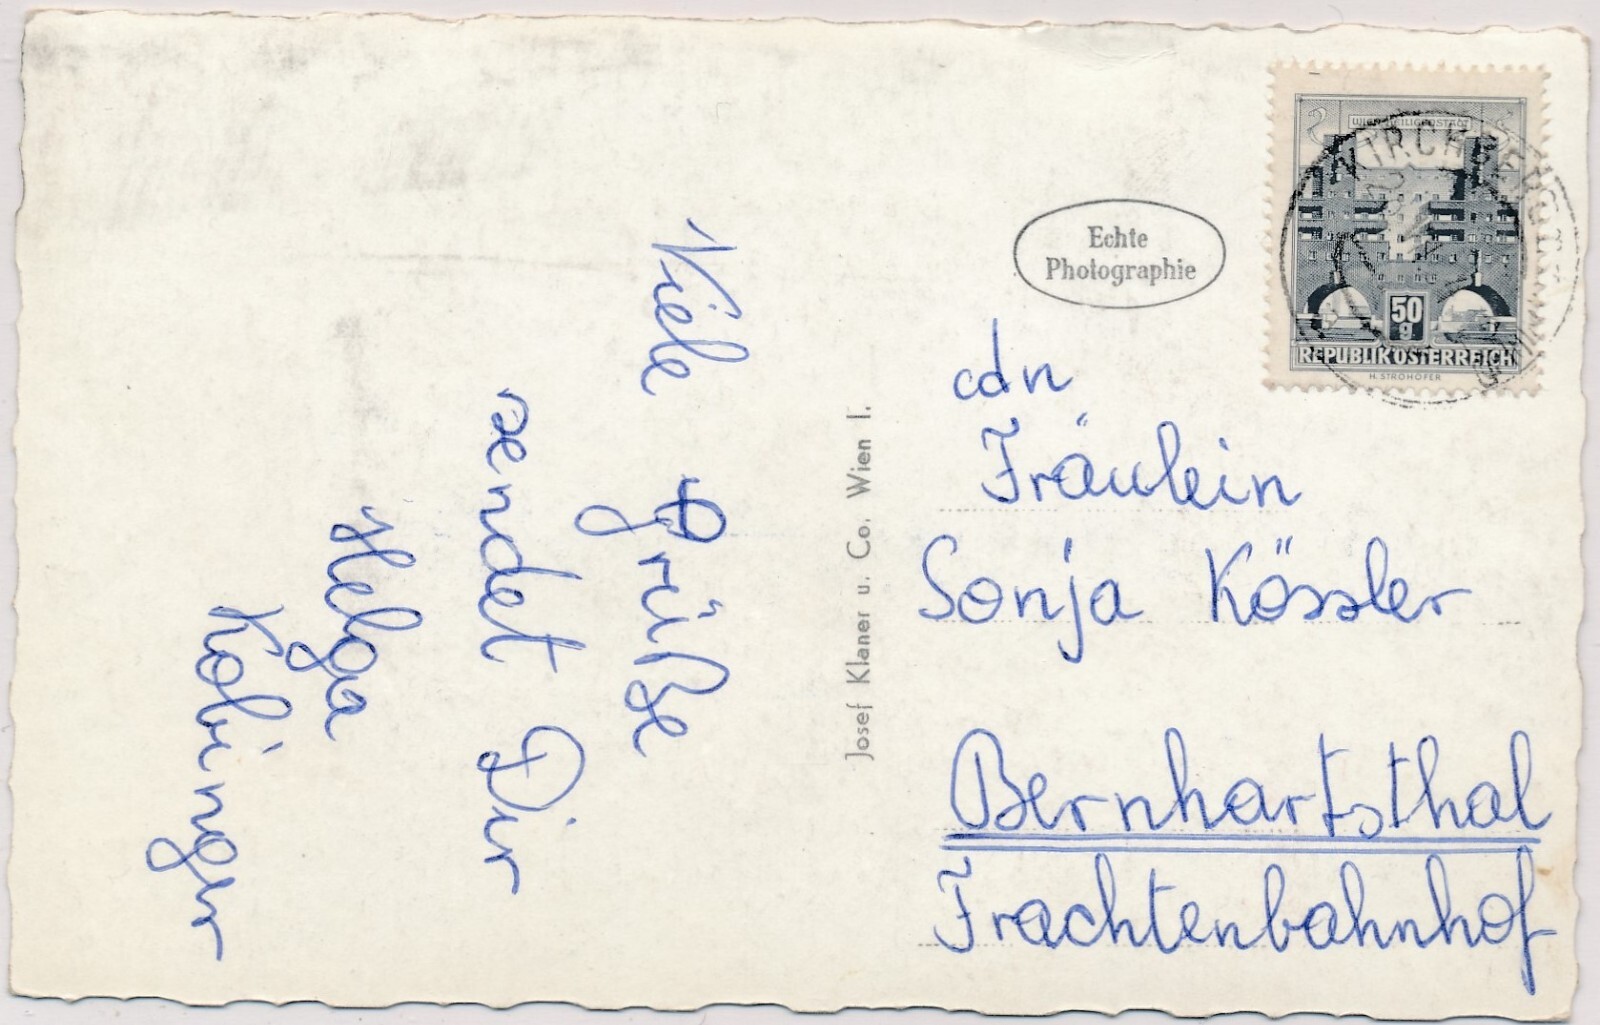 Viele Grüße
sendet Dir
Helga
Kobinger
Josef Klaner u. Co. Wien I.
Echte
Photographie
WIEN-HEILIGENSTADT
50
g
REPUBLIK ÖSTERREICH
H. STROHOFER
cdn
Fräulein
Sonja Kössler
Bernhartsthal
Frachtenbahnhof